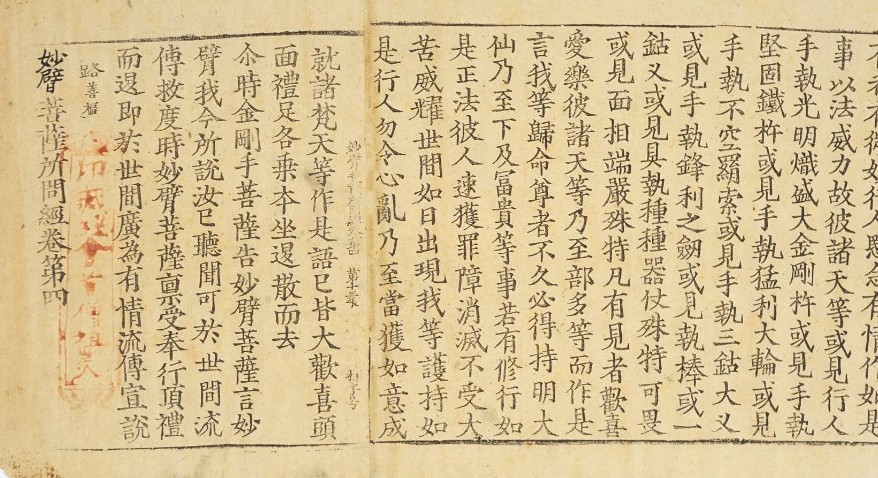 事以法威力故彼諸天等或見行人
手執光明熾盛大金剛杵或見手執
堅固鐵杵或見手執猛利大輪或見
手執不空罥索或見手執三鈷大义
或見手執鋒利之劒或見執棒或一
鈷义或見具執種種器仗殊特可畏
或見面相端嚴殊特凡有見者歡喜
愛樂彼諸天等乃至部多等而作是
言我等歸命尊者不久必得持明大
仙乃至下及冨貴等事若有修行如
是正法彼人速獲罪障消滅不受大
苦威耀世間如日出現我等護持如
是行人勿令心亂乃至當獲如意成
就諸梵天等作是語已皆大歡喜頭
面禮足各乗本坐還散而去
尒時金剛手菩薩告妙臂菩薩言妙
臂我今所說汝已聽聞可於世間流
傳救度時妙臂菩薩禀受奉行頂禮
而退即於世間廣為有情流傳宣說
路善
妙臂菩薩所問經卷第四